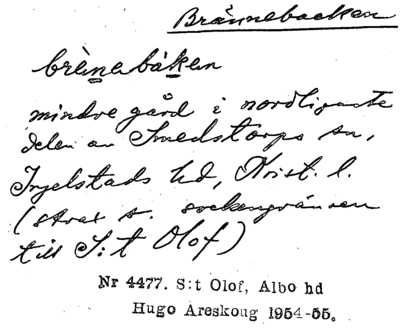 Brännebacken
brènebáken
mindre gård i nordligaste
delen av Smedstorps sn,
Ingelstads hd, Krist. l.
(strax s. sockengränsen
till S:t Olof)
Nr 4477. S:t Olof, Albo hd
Hugo Areskoug 1954-55.